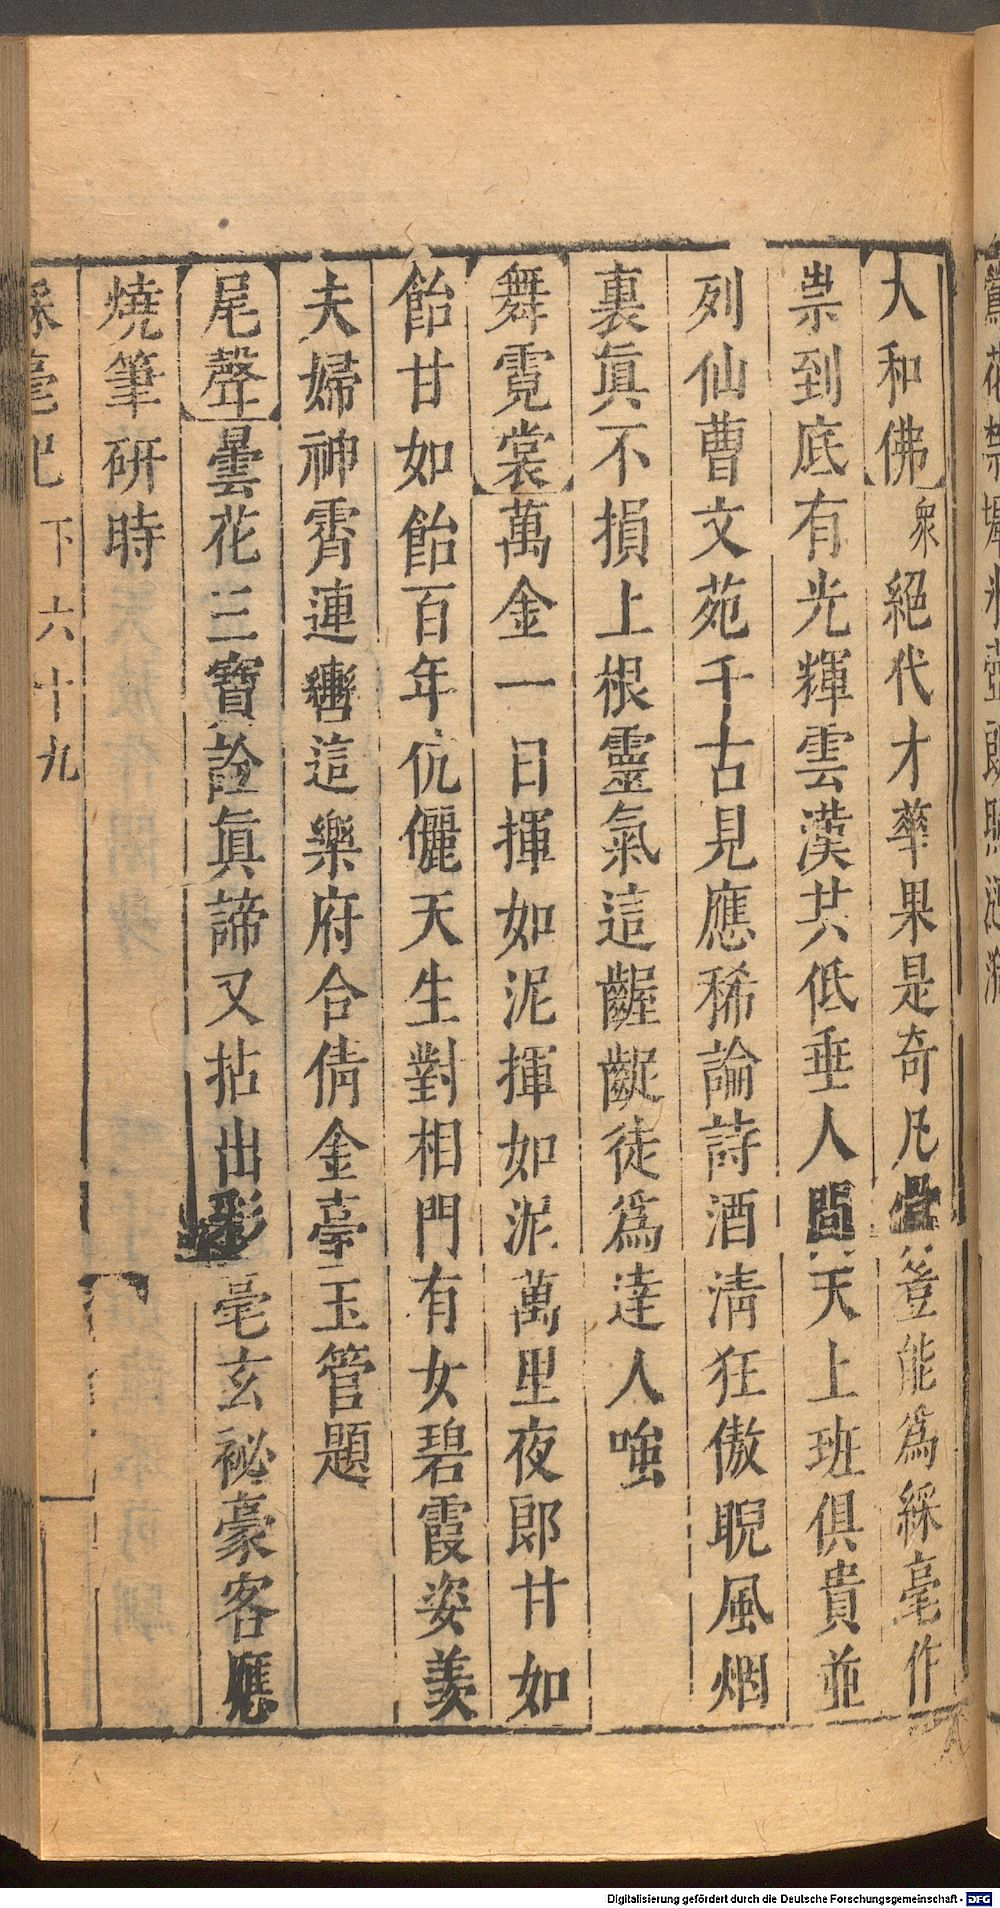 大和佛衆 絕代才華果是奇凡骨豈能爲綵毫作
祟到底有光輝雲漢共低垂人間天上班俱貴並
列仙曹文苑千古見應稀論詩酒淸狂傲睨風烟
裏眞不損上根靈氣這齷齪徒爲達人嗤
舞霓裳萬金一日揮如泥揮如泥萬里夜郎甘如
飴甘如飴百年伉儷天生對相門有女碧霞姿羨
夫婦神霄連轡這樂府合倩金臺玉管題
尾聲曇花三寶詮眞諦又拈出彩毫玄祕豪客應
燒筆硏時
綵毫記 下 六十九
Digitalisierung gefördert durch die Deutsche Forschungsgemeinschaft - DFG